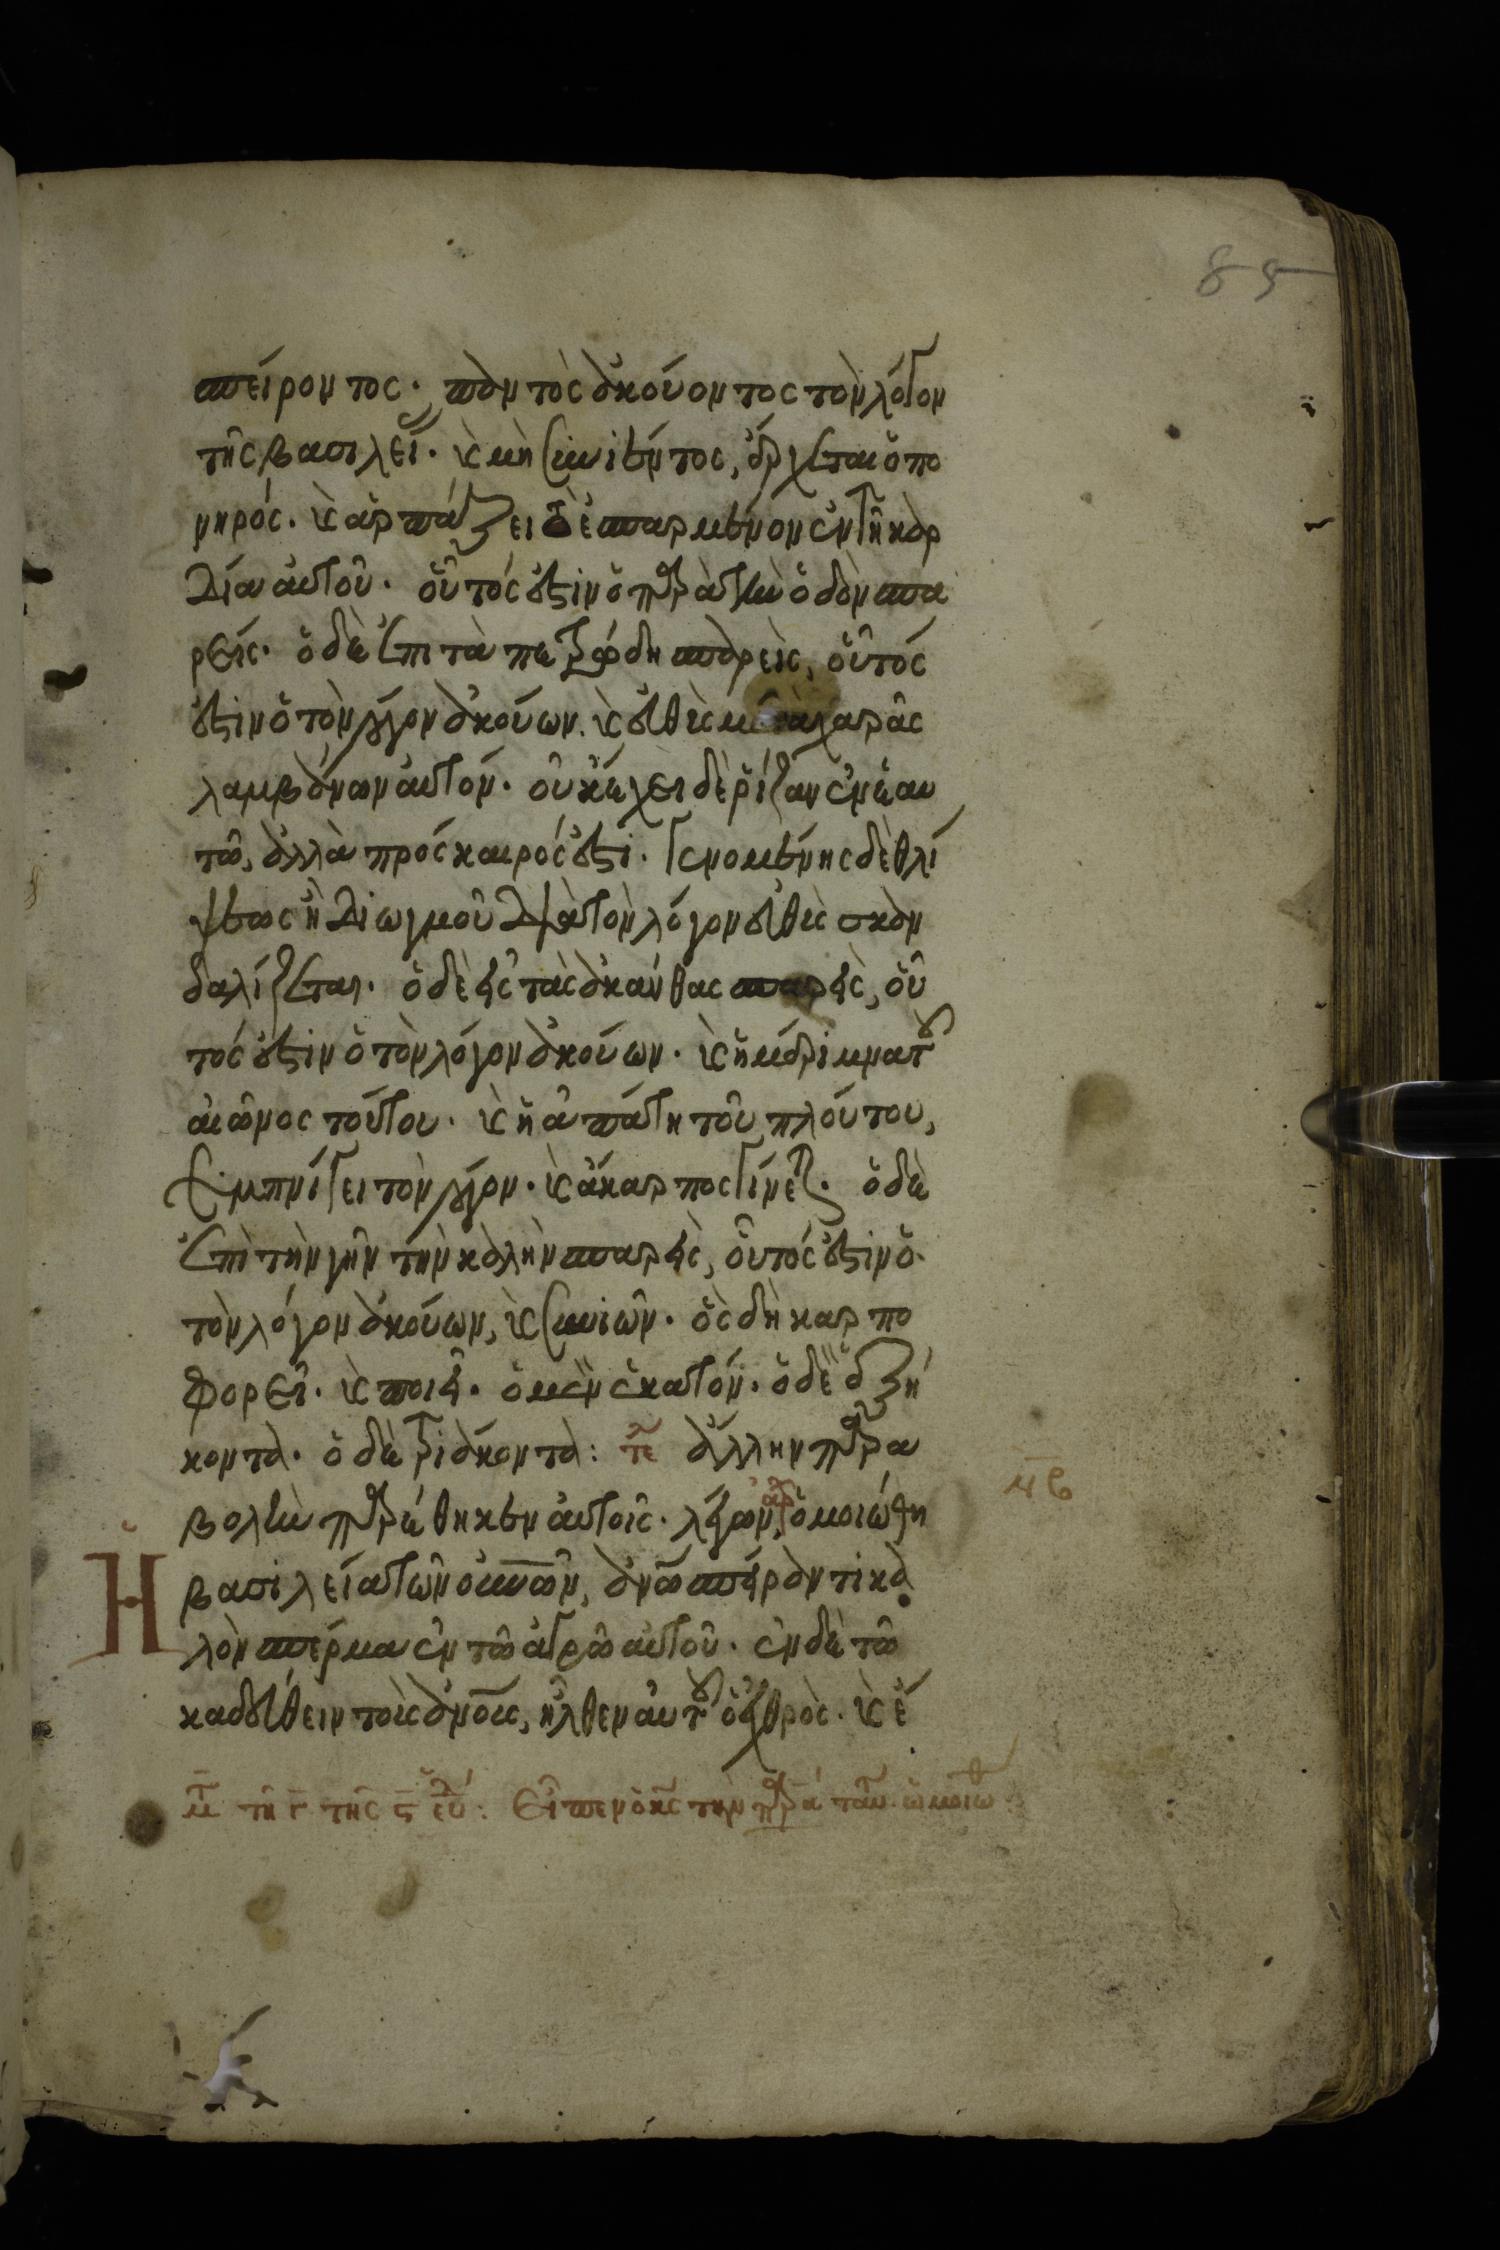 85
σπείροντος· παντὸς ἀκούοντος τὸν λόγον
τῆς βασιλεί(ας)· κ(αὶ) μὴ συνιέντος, ἔρχεται ὁ πο
νηρός· κ(αὶ) ἁρπάζει τὸ ἐσπαρμένον ἐν τῆ καρ
δία αὐτοῦ· οὗτός ἐστιν ὁ παρὰ τὴν ὁδὸν σπα
ρείς· ὁ δὲ ἐπι τὰ πετρώδη σπαρεὶς, οὗτός
ἐστιν ὁ τὸν λόγον ἀκούων· κ(αὶ) εὐθὺς μετὰ χαρᾶς
λαμβάνων αὐτόν· οὐκ ἔχει δὲ ῥίζαν ἐν ἑαυ
τῶ, ἀλλὰ πρόσκαιρός ἐστι· γενομένης δὲ θλί
ψεως ἢ διωγμοῦ διὰ τὸν λόγον εὐθὺς σκαν
δαλίζεται· ὁ δὲ εἰς τὰς ἀκάνθας σπαρεὶς, οὗ
τός ἐστιν ὁ τὸν λόγον ἀκούων· κ(αὶ) ἡ μέριμνα τοῦ
αἰῶνος τούτου· κ(αὶ) ἡ ἀπάτη τοῦ πλούτου,
συμπνίγει τὸν λόγον· κ(αὶ) ἄκαρπος γίνετ(αι)· ὁ δὲ
ἐπὶ τὴν γῆν τὴν καλὴν σπαρεὶς, οὗτός ἐστιν ὁ
τὸν λόγον ἀκούων, κ(αὶ) συνιῶν· ὃς δὴ καρπο
φορεῖ· κ(αὶ) ποιεῖ· ὁ μὲν ἑκατόν· ὁ δὲ ἑξή
κοντα· ὁ δὲ τριάκοντα: τε ἄλλην παρα
βολὴν παρέθηκεν αὐτοῖς· λέγων, αρ ὁμοιώθη
Ἡ βασιλεία τῶν οὐνῶν, ἀνω σπείραντι κα
λὸν σπέρμα ἐν τῶ ἀγρῶ αὐτοῦ· ἐν δὲ τῶ
καθεύθειν τοὺς ἀνους, ἦλθεν αὐτοῦ ὁ ἐχθρὸς· κ(αὶ) ἔ
τῆ γ τῆς ς ἑβδ: Εἶπεν ὁ κς τὴν παρα ταύτ ὡμοιώθ